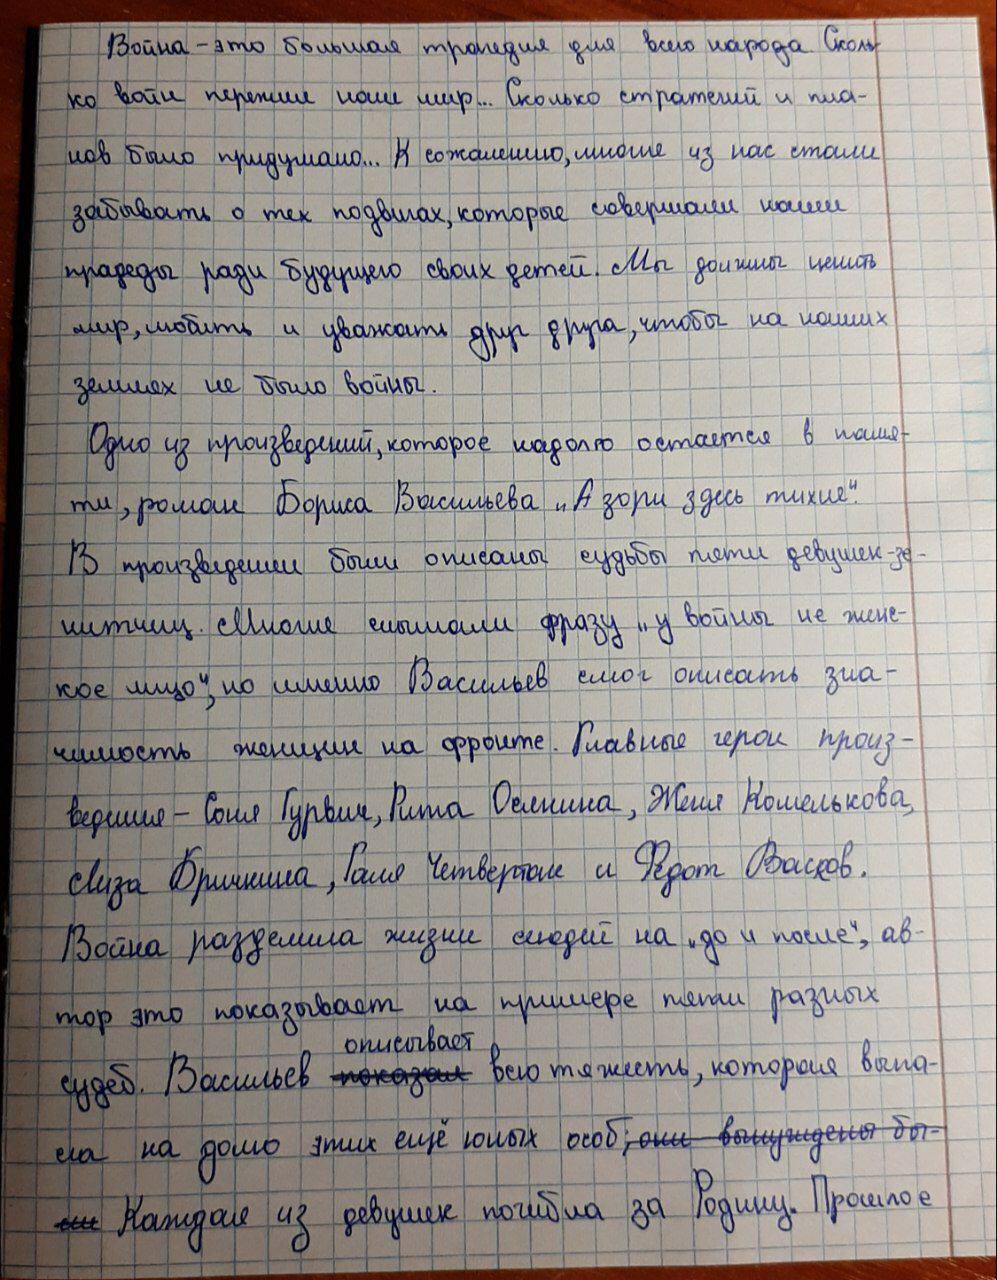 Война – это большая трагедия для всего народа. Сколь-
ко войн пережил наш мир... Сколько стратегий и пла-
нов было придумано... К сожалению, многие из нас стали
забывать о тех подвигах, которые совершали наши
прадеды ради будущего своих детей. Мы должны ценить
мир, любить и уважать друг друга, чтобы на наших
землях не было войны.
Одно из произведений, которое надолго остается в памя-
ти, роман Бориса Васильева „А зори здесь тихие".
В произведении были описаны судьбы пяти девушек-зе-
нитчиц. Многие слышали фразу „у войны не женс-
кое лицо", но именно Васильев смог описать зна-
чимость женщин на фронте. Главные герои произ-
ведения – Соня Гурвич, Рита Осянина, Женя Комелькова,
Лиза Бричкина, Галя Четвертак и Федот Васков.
Война разделила жизни людей на „до и после", ав-
тор это показывает на примере пяти разных
описывает
судеб. Васильев показал всю тяжесть, которая выпа-
ла на долю этих ещё юных особ, они вынуждены бы-
ли Каждая из девушек погибла за Родину. Прошлое